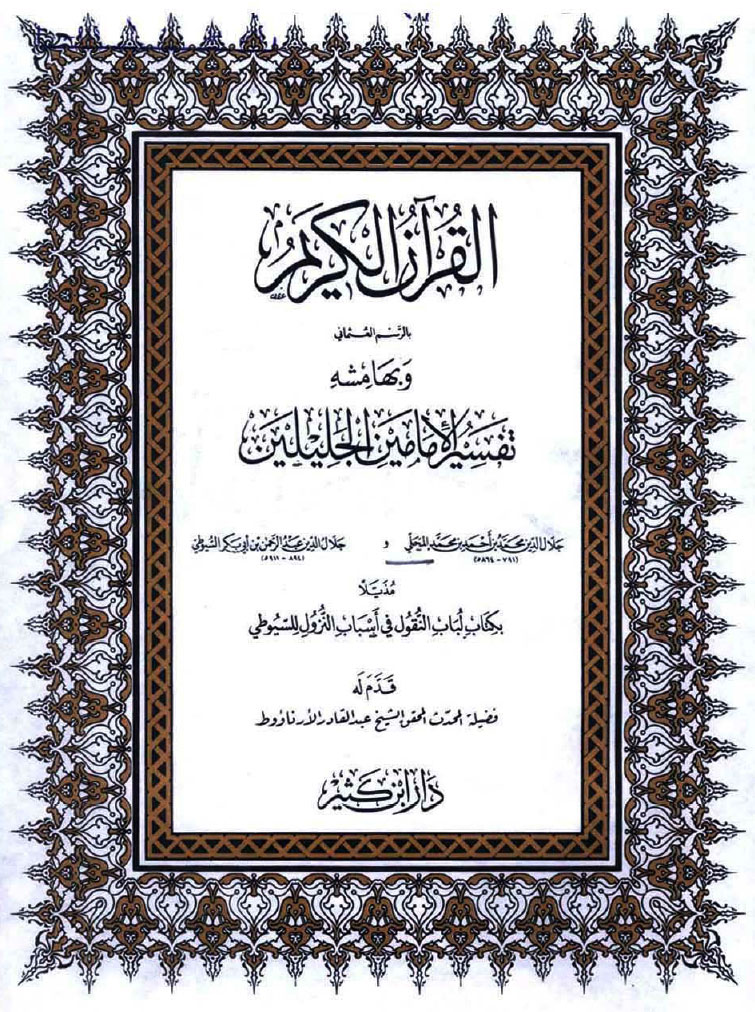 القُرآنُ الكَرِيمُ
بالرَّسْمِ العُثماني
وَبهَامِشهِ
تَفسِيرُ الإِمَامَيْنِ الجَلِيلَيْن
جَلال الدّين محَمَّد بن أحْمَد بن محَمَّد المَحَلّي و جَلال الدّين عَبْد الرَّحمن بن أبي بَكر السُّيُوطي
(٧٩١ - ٨٦٤هـ) (٨٩٤ - ٩١١هـ)
مُذَيَّلاً
بكِتَابِ لُبَابِ النُّقُول في أَسْبَابِ النُّزُول للسّيُوطي
قَدَّمَ لَه
فضيلة المحدّث المحقق الشيخ عبد القادر الأرناؤوط
دَار ابن كَثير